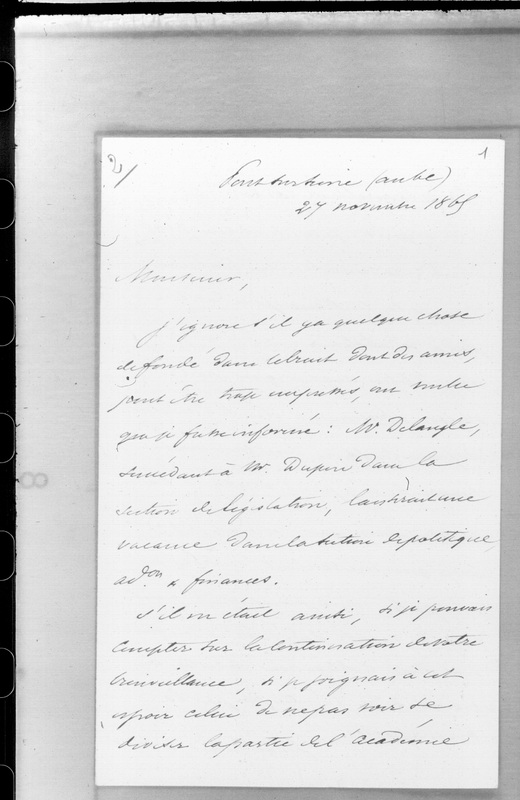 2/ 1
Pont sur Seine (aube)
27 novembre 1865
Monsieur,
j'ignore s'il y a quelque chose
de fondé dans le bruit dont des amis,
peut être trop empressés, ont voulu
que je fusse informé : Mr. Delangle,
succédant à Mr. Dupin dans la
section de législation, laisserait une
vacance dans la section de politique,
adon. & finances.
S'il en était ainsi, si je pouvais
compter sur la continuation de votre
bienveillance, si je joignais à cet
espoir celui de ne pas voir se
diviser la partie de l'académie